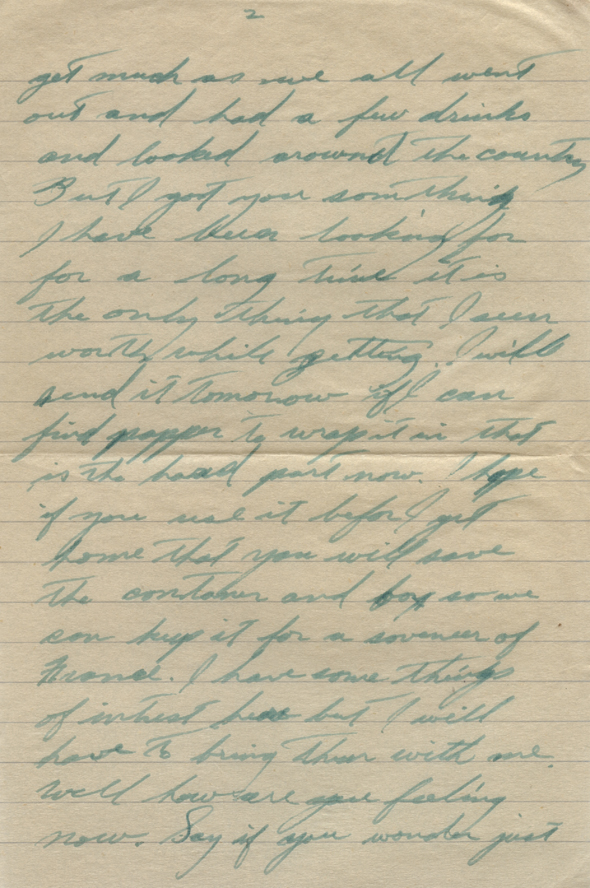 2
get much as we all went
out and had a few drinks
and looked around the country
But I got you something
I have been looking for
for a long time it is
the only thing that I seen
worth while getting. I will
send it tomorrow if I can
find papper to wrap it in that
is the haad part now. I hope
if you use it befor I get
home that you will save
the contaner and box so we
can keep it for a soveneer of
France. I have some things
of intrest here but I will
have to bring them with me.
Well how are you feeling
now. Say if you wonder just